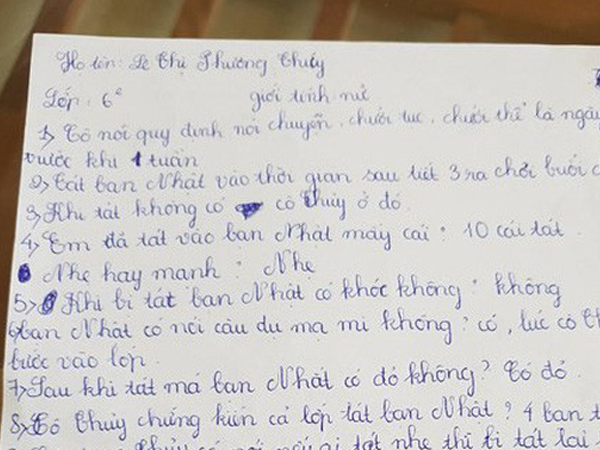 Họ tên: Lê Thị Phương Thúy
Lớp: 6² giới tính nữ
1, Cô nói quy định nói chuyện, chưởi tục, chưởi thề là ngày
trước khi 1 tuần
2, Tát bạn Nhật vào thời gian sau tiết 3 ra chơi buổi
3, Khi tát không có cô Thủy ở đó.
4, Em đã tát vào bạn Nhật mấy cái: 10 cái tát.
Nhẹ hay mạnh: Nhẹ
5, Khi bị tát bạn Nhật có khóc không: không
6, bạn Nhật có nói câu dụ mạ mi không? có, lúc cô
bước vào lớp.
7, Sau khi tát má bạn Nhật có đỏ không? Có đỏ.
8, Cô Thủy chứng kiến cả lớp tát bạn Nhật? 4 bạn
Thủy có nói ai tát nhẹ thì bị tát lại